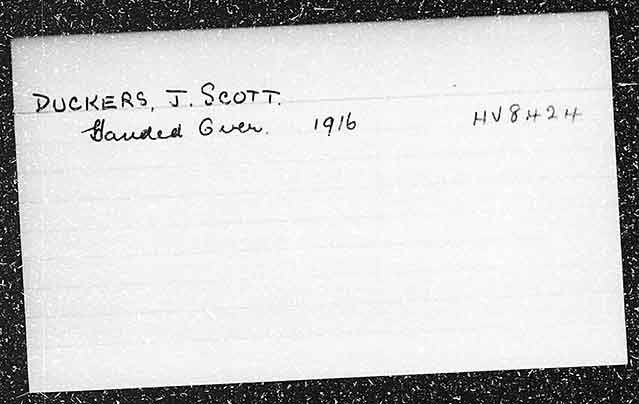 DUCKERS, J. SCOTT.
Handed Over. 1916 HV8424